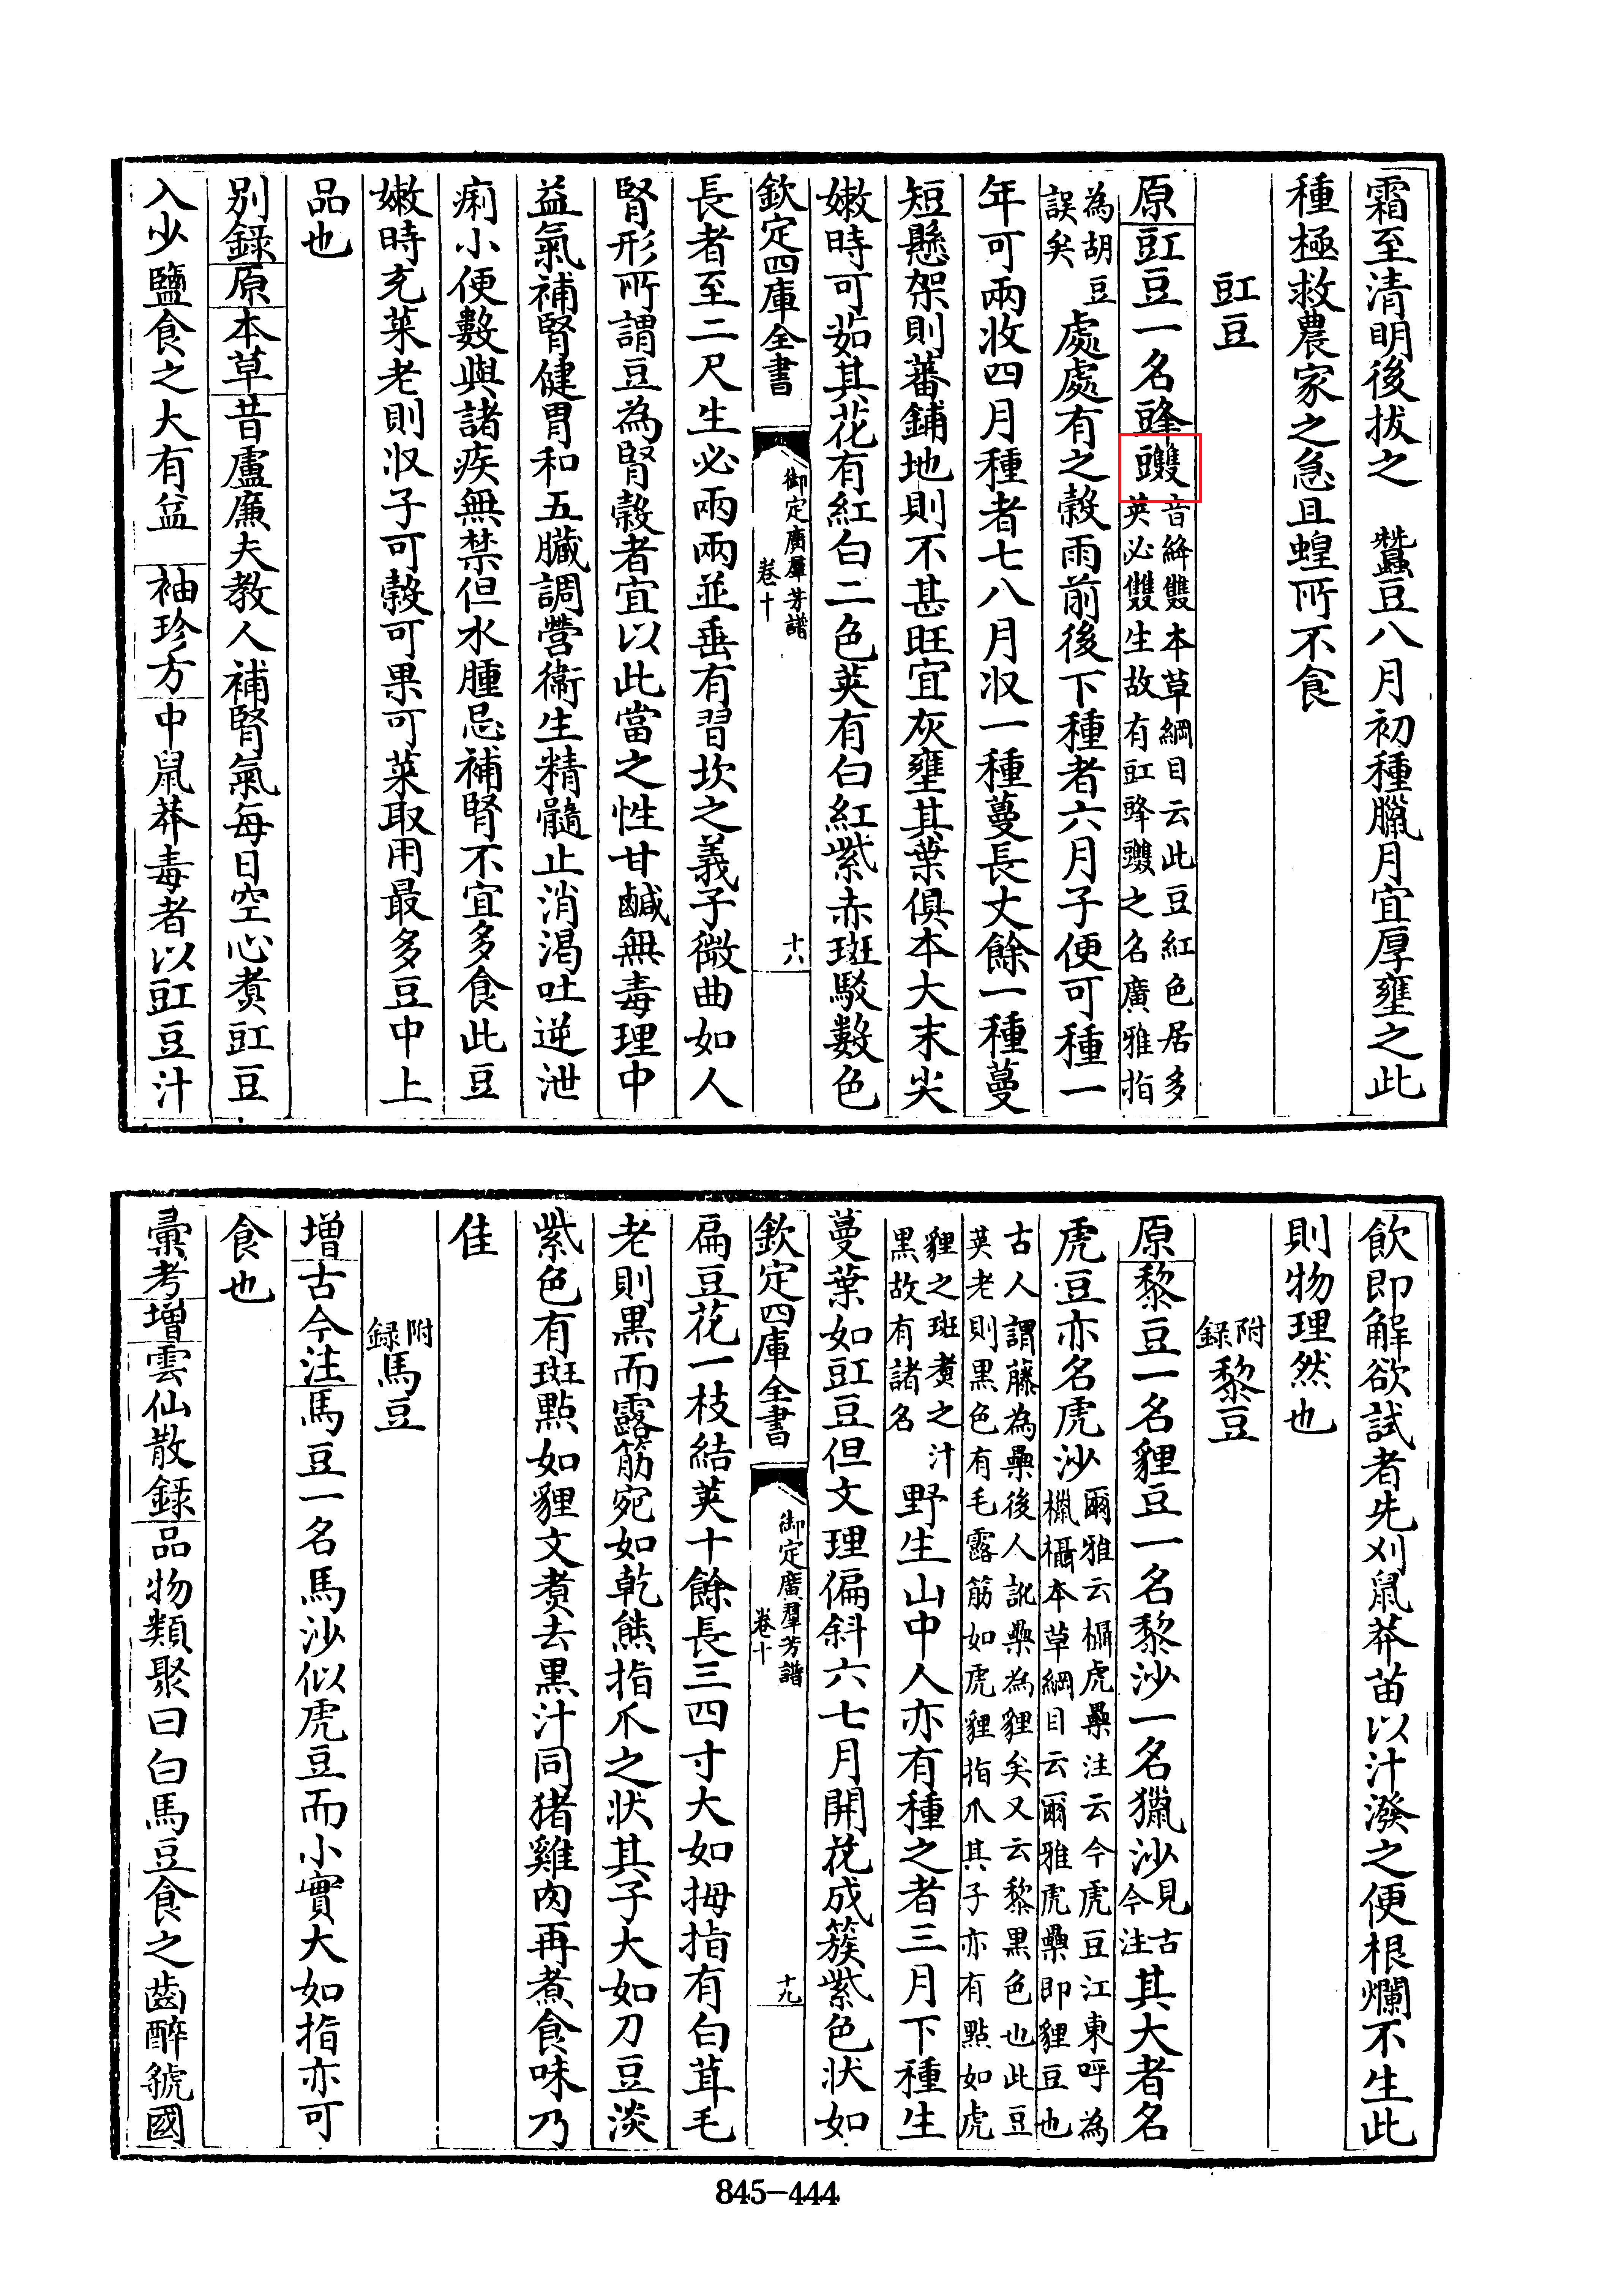 霜至清明後拔之　蠶豆八月初種臘月宜厚壅之此
種極救農家之急且蝗所不食
豇豆
原豇豆一名䜶音絳雙本草綱目云此豆紅色居多莢必雙生故有豇䜶之名廣雅指
為胡豆誤矣處處有之穀雨前後下種者六月子便可種一
年可兩收四月種者七八月收一種蔓長丈餘一種蔓
短懸架則蕃鋪地則不甚旺宜灰壅其葉俱本大末尖
嫩時可茹其花有紅白二色莢有白紅紫赤斑駁數色
欽定四庫全書　御定廣羣芳譜　卷十　十八
長者至二尺生必兩兩並垂有習坎之義子微曲如人
腎形所謂豆為腎穀者宜以此當之性甘鹹無毒理中
益氣補腎健胃和五臟調營衞生精髓止消渴吐逆泄
痢小便數與諸疾無禁但水腫忌補腎不宜多食此豆
嫩時充菜老則収子可穀可果可菜取用最多豆中上
品也
别録原本草昔盧廉夫教人補腎氣每日空心煑豇豆
入少鹽食之大有益　袖珍方中鼠莽毒者以豇豆汁
飲即解欲試者先刈鼠莽苗以汁潑之便根爛不生此
則物理然也
附録黎豆
原黎豆一名貍豆一名黎沙一名獵沙見古今注其大者名
虎豆亦名虎沙爾雅云欇虎櫐注云今虎豆江東呼為欇欇本草綱目云爾雅虎櫐即貍豆也
古人謂藤為櫐後人訛櫐為貍矣又云黎黑色也此豆莢老則黑色有毛露筋如虎貍指爪其子亦有點如虎
貍之斑煑之汁黑故有諸名野生山中人亦有種之者三月下種生
蔓葉如豇豆但文理偏斜六七月開花成簇紫色狀如
欽定四庫全書　御定廣羣芳譜　卷十　十九
扁豆花一枝結莢十餘長三四寸大如拇指有白茸毛
老則黑而露筋宛如乾熊指爪之狀其子大如刀豆淡
紫色有斑點如貍文煑去黑汁同猪雞肉再煮食味乃
佳
附録馬豆
增古今注馬豆一名馬沙似虎豆而小實大如指亦可
食也
彙考增雲仙散録品物類聚曰白馬豆食之齒醉號國
845-444